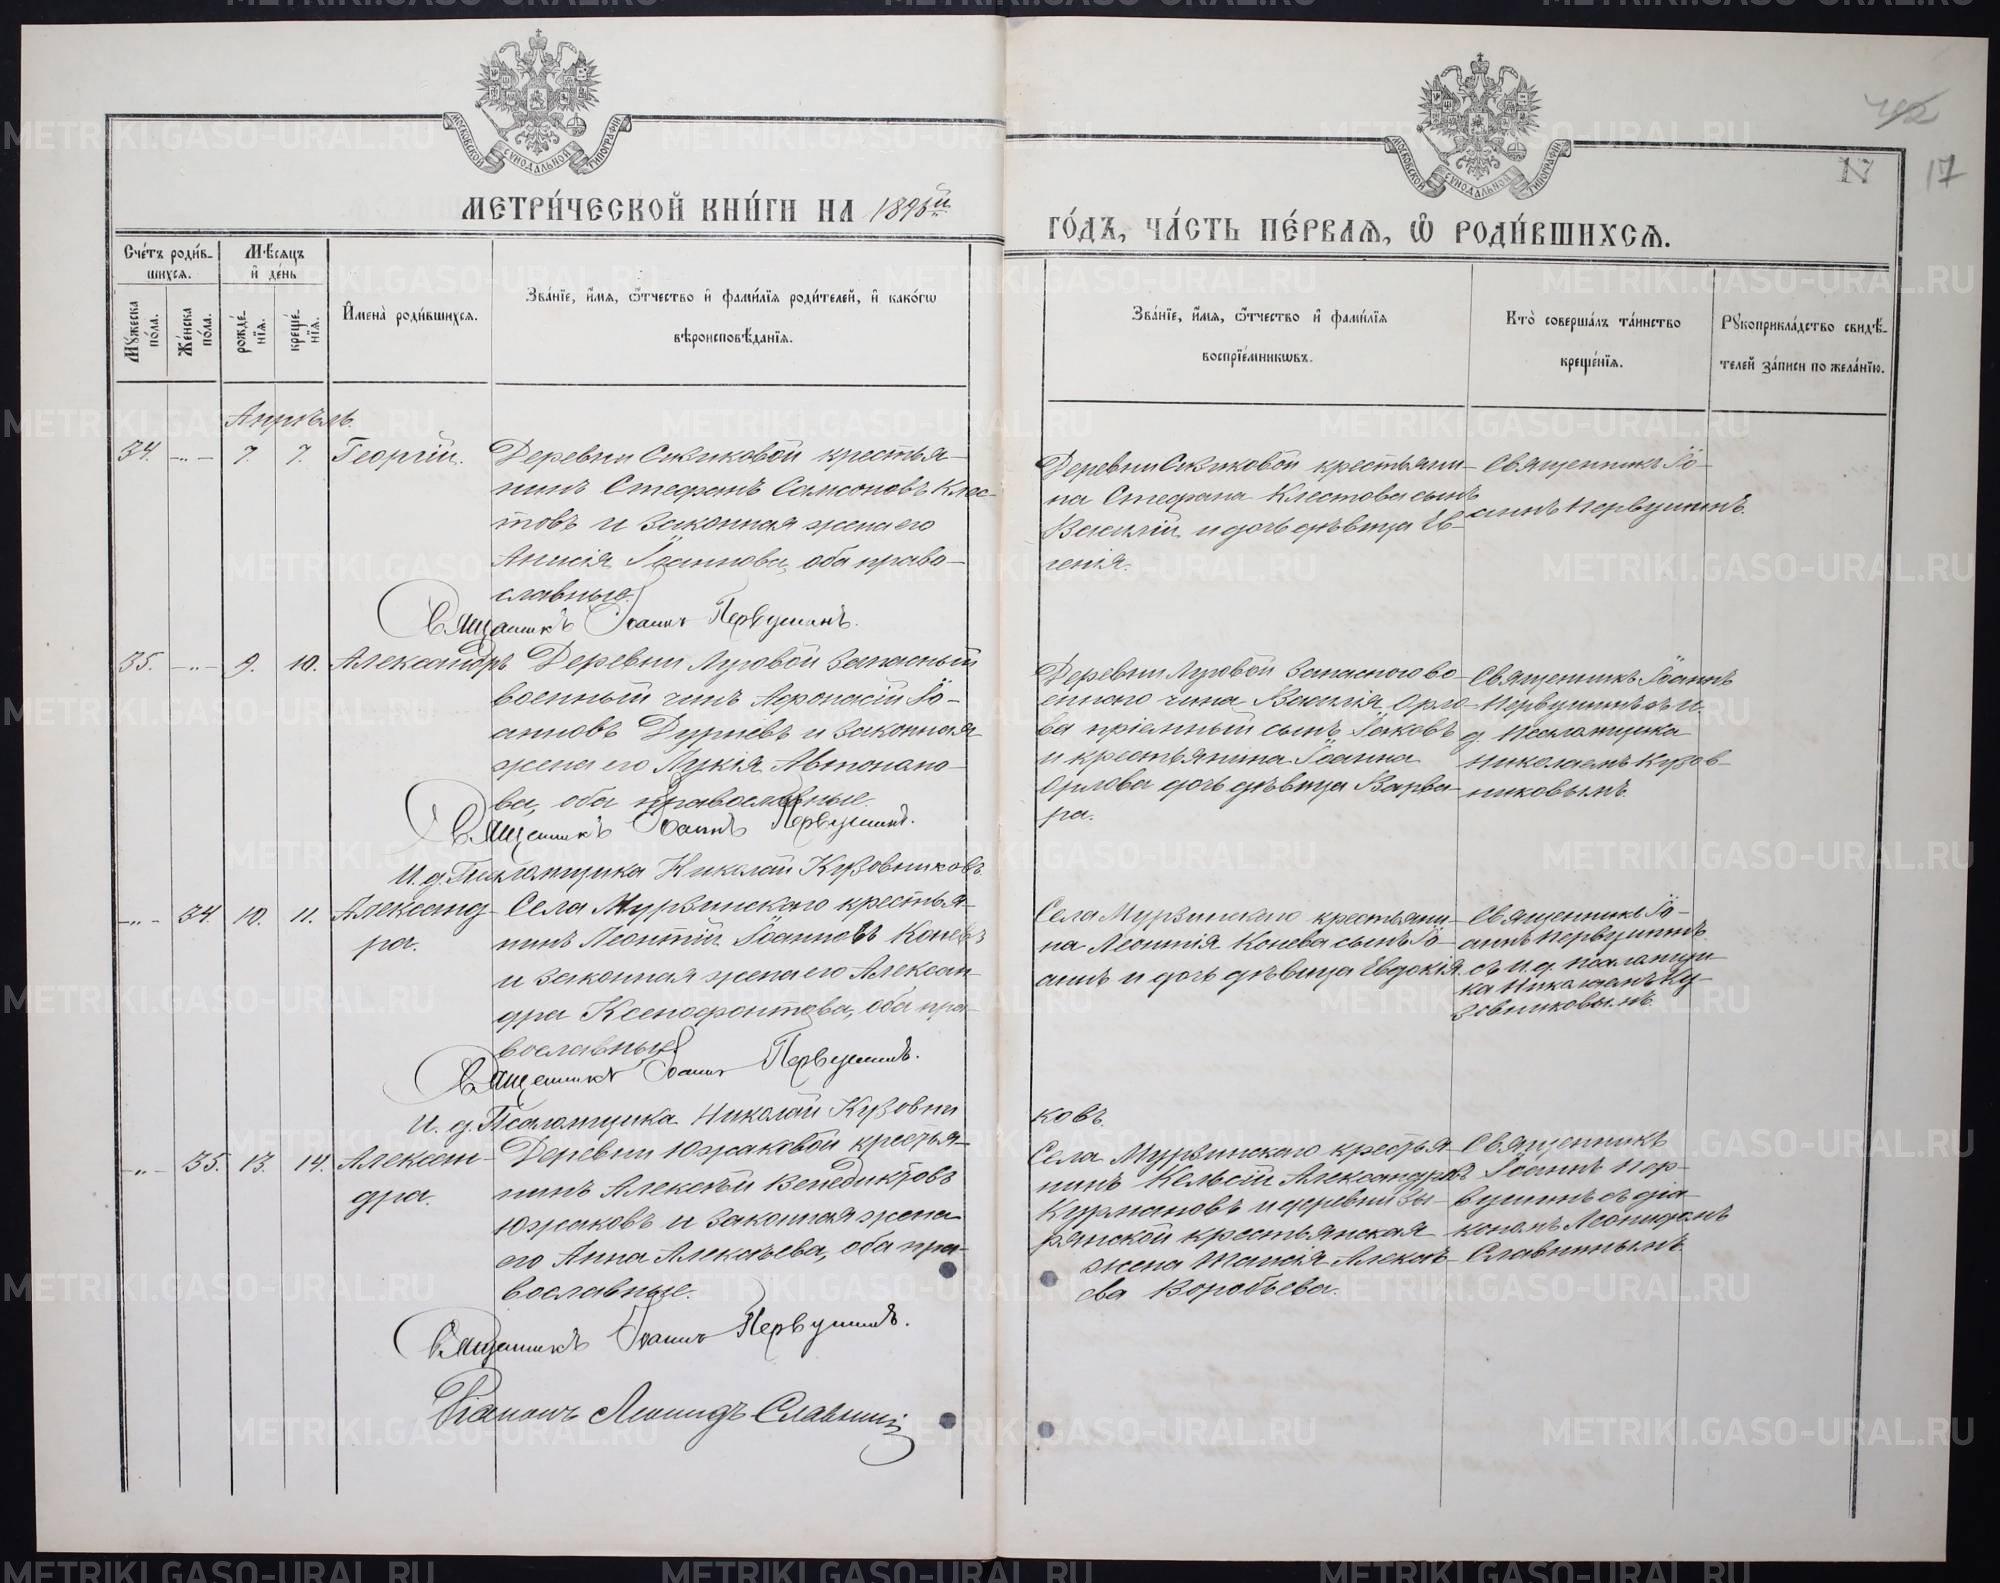 МОСКОВСКОЙ СУНОДАЛЬНОЙ ТИПОГРАФІИ
МОСКОВСКОЙ СУНОДАЛЬНОЙ ТИПОГРАФІИ
17
МЕТРИ́ЧЕСКОЙ КНИ́ГИ НА 1895й
ГО́ДЪ, ЧА́СТЬ ПЕ́РВАѦ, Ѡ҆ РОДИ́ВШИХСѦ.
Сче́тъ роди́в-
шихсѧ.
Мꙋжеска по́ла.
Же́нска по́ла.
Мѣ́сѧцъ
и҆ де́нь
рожде́-
нїѧ.
креще́-
нїѧ.
И҆мена̀ роди́вшихсѧ.
Зва́нїе, и҆́мѧ, ѻ҆́тчество и҆ фами́лїѧ роди́телей, и҆ како́гѡ
вѣроисповѣ́данїѧ.
Зва́нїе, и҆́мѧ, ѻ҆́тчество и҆ фами́лїѧ
воспрїе́мникѡвъ.
Кто̀ соверша́лъ та́инство
креще́нїѧ.
Рꙋкоприкла́дство свидѣ́-
телей за́писи по жела́нїю.
Апрѣль.
34. -„- 7. 7. Георгій.
Деревни Сизиковой крестья-
нинъ Стефанъ Самсоновъ Клес-
товъ и законная жена его
Анисія Іоаннова, оба право-
славные.
Священникъ Іоаннъ Первушинъ.
Деревни Сизиковой крестьяни-
на Стефана Клестова сынъ
Василій и дочь дѣвица Ев-
генія.
Священникъ Іо-
аннъ Первушинъ.
35. -„- 9. 10. Александръ
Деревни Луговой запасный
военный чинъ Афонасій Іо-
анновъ Дурневъ и законная
жена его Лукія Автоно
ва, оба православные.
Священникъ Іоаннъ Первушинъ.
И. д. Псаломщика Николай Кузовниковъ.
Деревни Луговой запаснаго во-
еннаго чина Василія Орло-
ва пріемный сынъ Іаковъ
и крестьянина Іоанна
Орлова дочь дѣвица Варва-
ра.
Священникъ Іоаннъ
Первушинъ съ И.
д. Псаломщика
Николаемъ Кузов-
никовымъ.
-„- 34. 10. 11. Александ-
ра.
Села Мурзинскаго крестья-
нинъ Леонтій Іоанновъ Коневъ
и законная жена его Алексан-
дра Ксенофонтова, оба пра-
вославные.
Священникъ Іоаннъ Первушинъ.
И. д. Псаломщика Николай Кузовни
ковъ.
Села Мурзинскаго крестьяни-
на Леонтія Конева сынъ Іо-
аннъ и дочь дѣвица Евдокія.
Священникъ Іо-
аннъ Первушинъ
съ И. д. псаломщи-
ка Николаемъ Ку-
зовниковымъ.
-„- 35. 13. 14. Алексан-
дра.
Деревни Южаковой крестья-
нинъ Алексѣй Венедиктовъ
Южаковъ и законная жена
его Анна Алексѣева, оба пра-
вославные.
Священникъ Іоаннъ Первушинъ.
Діаконъ Леонидъ Славнинъ
Села Мурзинскаго крестья-
нинъ Кельсій Александровъ
Курмановъ и деревни Зы-
рянской крестьянская
жена Таисія Алексѣ-
ева Воробьева.
Священникъ
Іоаннъ Пер-
вушинъ съ діа-
кономъ Леонидомъ
Славнинымъ.
METRIKI.GASO-URAL.RU